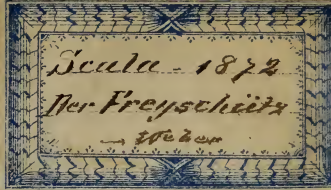 Scala - 1872
Der Freyschütz
Weber